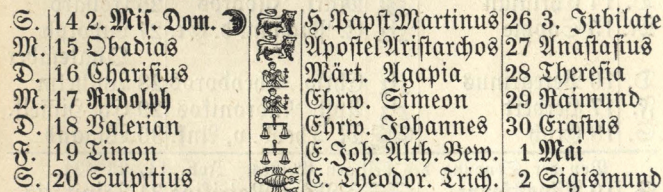 S. 14 2. Miſ. Dom. H. Papſt Martinus 26 3. Jubilate
M. 15 Obadias Apoſtel Ariſtarchos 27 Anaſtaſius
D. 16 Chariſius Märt. Agapia 28 Thereſia
M. 17 Rudolph Ehrw. Simeon 29 Raimund
D. 18 Valerian Ehrw. Johannes 30 Eraſtus
F. 19 Timon E. Joh. Alth. Bew. 1 Mai
S. 20 Sulpitius E. Theodor. Trich. 2 Sigismund